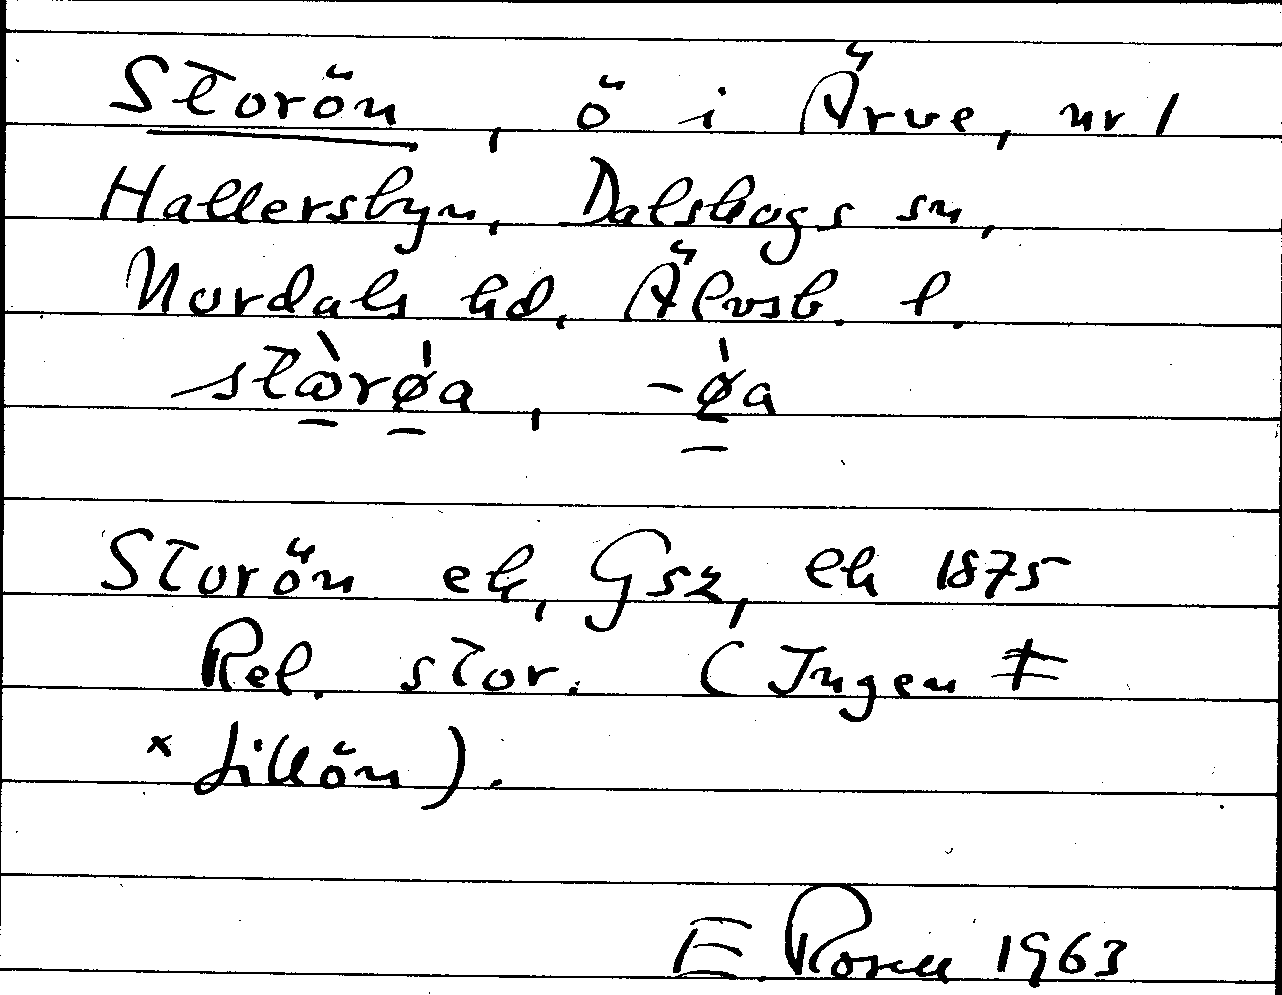 Storön, ö i Ärve, nr 1
Hallersbyn, Dalskogs sn,
Nordals hd, Älvsb. l.
stὼrø̍a, -ø̍a
Storön ek, Gsz, Ek 1875
Rel. stor. (Ingen ‡
× Lillön).
E Rosell 1963